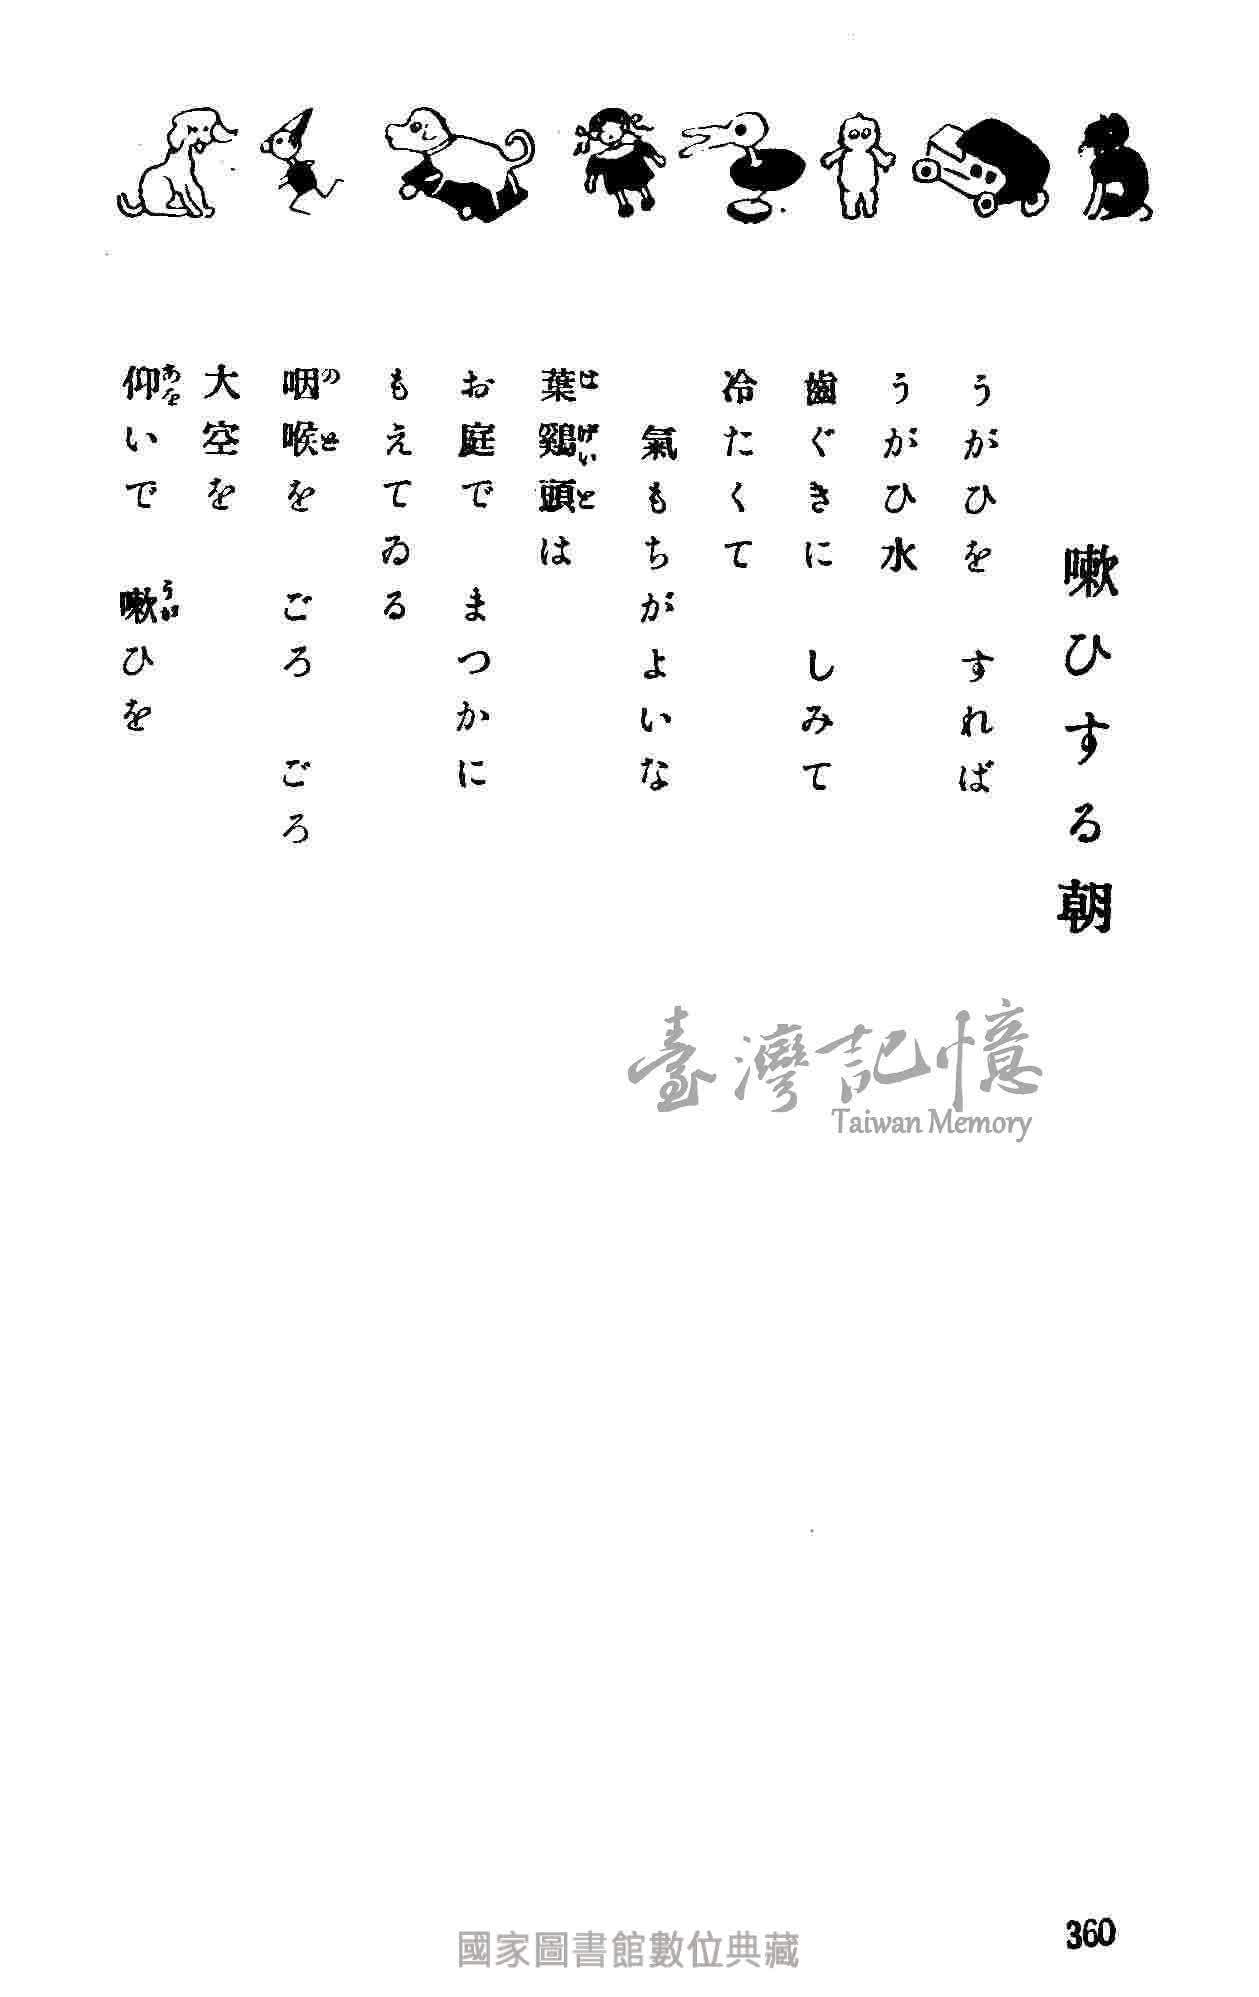 嗽ひする朝
うがひを　すれば
うがひ水
齒ぐきに　しみて
冷たくて
氣もちがよいな
葉鷄頭は
はげいと
お庭で　まつかに
もえてゐる
咽喉を　ごろ　ごろ
のど
大空を
仰いで　嗽ひを
あを　うが
臺灣記憶
Taiwan Memory
國家圖書館數位典藏
360